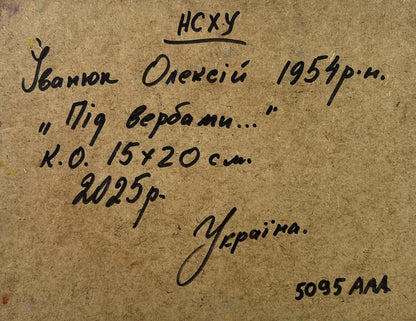 НСХУ
Іванюк Олексій 1954р.н.
„Під вербами..."
К.О. 15х20см.
2025р.
Україна.
5095 ААА